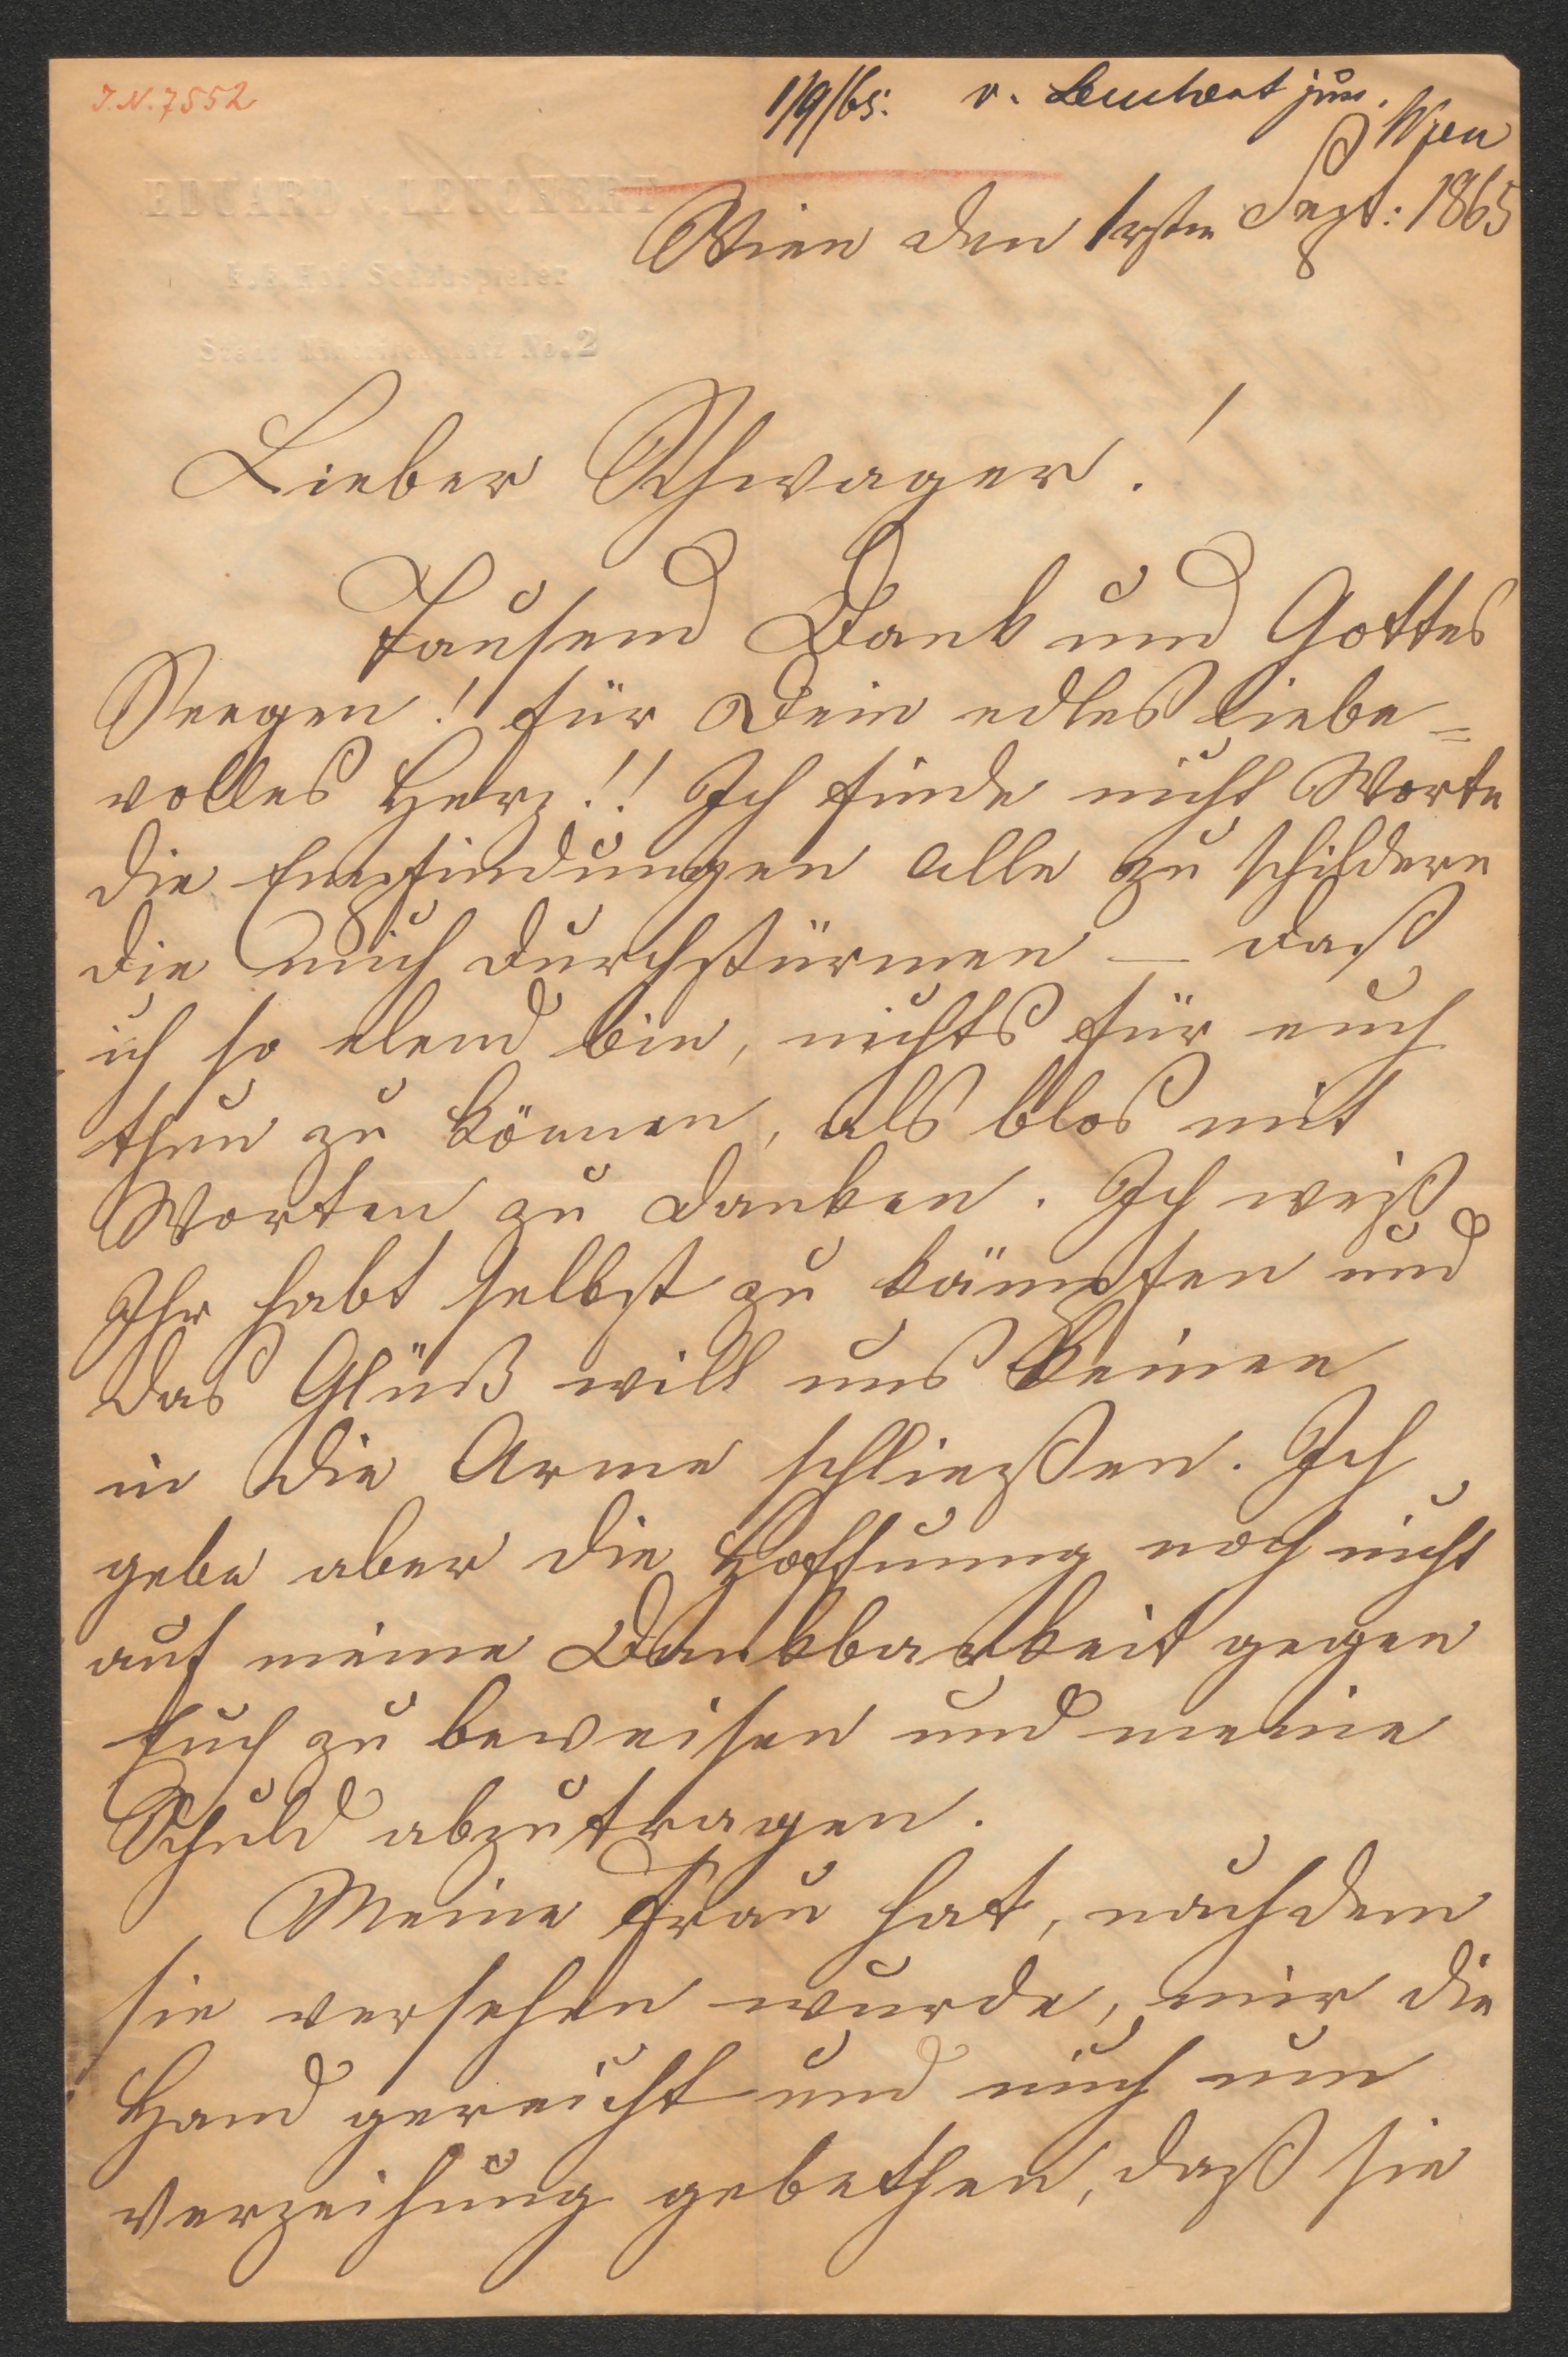 J.N. 7552
1/9/65. v. Leuchert jun. Wien
EDUARD LEUCKERT
k.k. Hof Schauspieler
Stadt No. 2
Wien den 1rsten Sept: 1865
Lieber Schwager!
Tausend Dank und Gottes
Seegen! für Dein edles liebe=
volles Herz!! Ich finde nicht Worte
die Empfindungen alle zu schildern
die mich durchstürmen — daß
ich so elend bin, nichts für euch
thun zu können, als blos mit
Worten zu danken. Ich weiß
Ihr habt selbst zu kämpfen und
das Glück will uns keinen
in die Arme schließen. Ich
gebe aber die Hoffnung noch nicht
auf meine Dankbarkeit gegen
Euch zu beweisen und meine
Schuld abzutragen.
Meine Frau hat, nachdem
sie versehen wurde, mir die
Hand gereicht und mich um
Verzeihung gebethen, daß sie